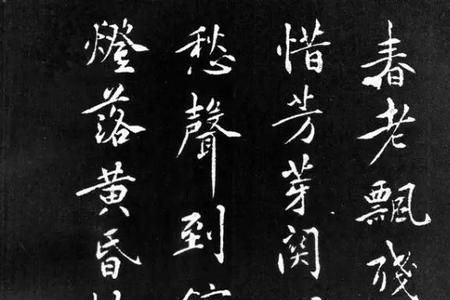 春老飄殘
惜芳芽闵
愁聲到
燈落黃昏